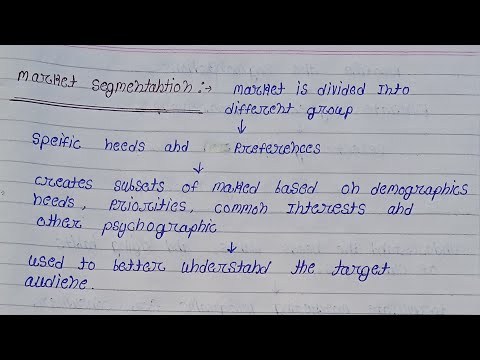 Market Segmentahtion :→ market is divided Into
different group
↓
Speific needs and Preferences
↓
creates subsets of maked based on demographics
needs, Priorities, common Interests and
other psychographic
↓
used to better understand the target
audiene.